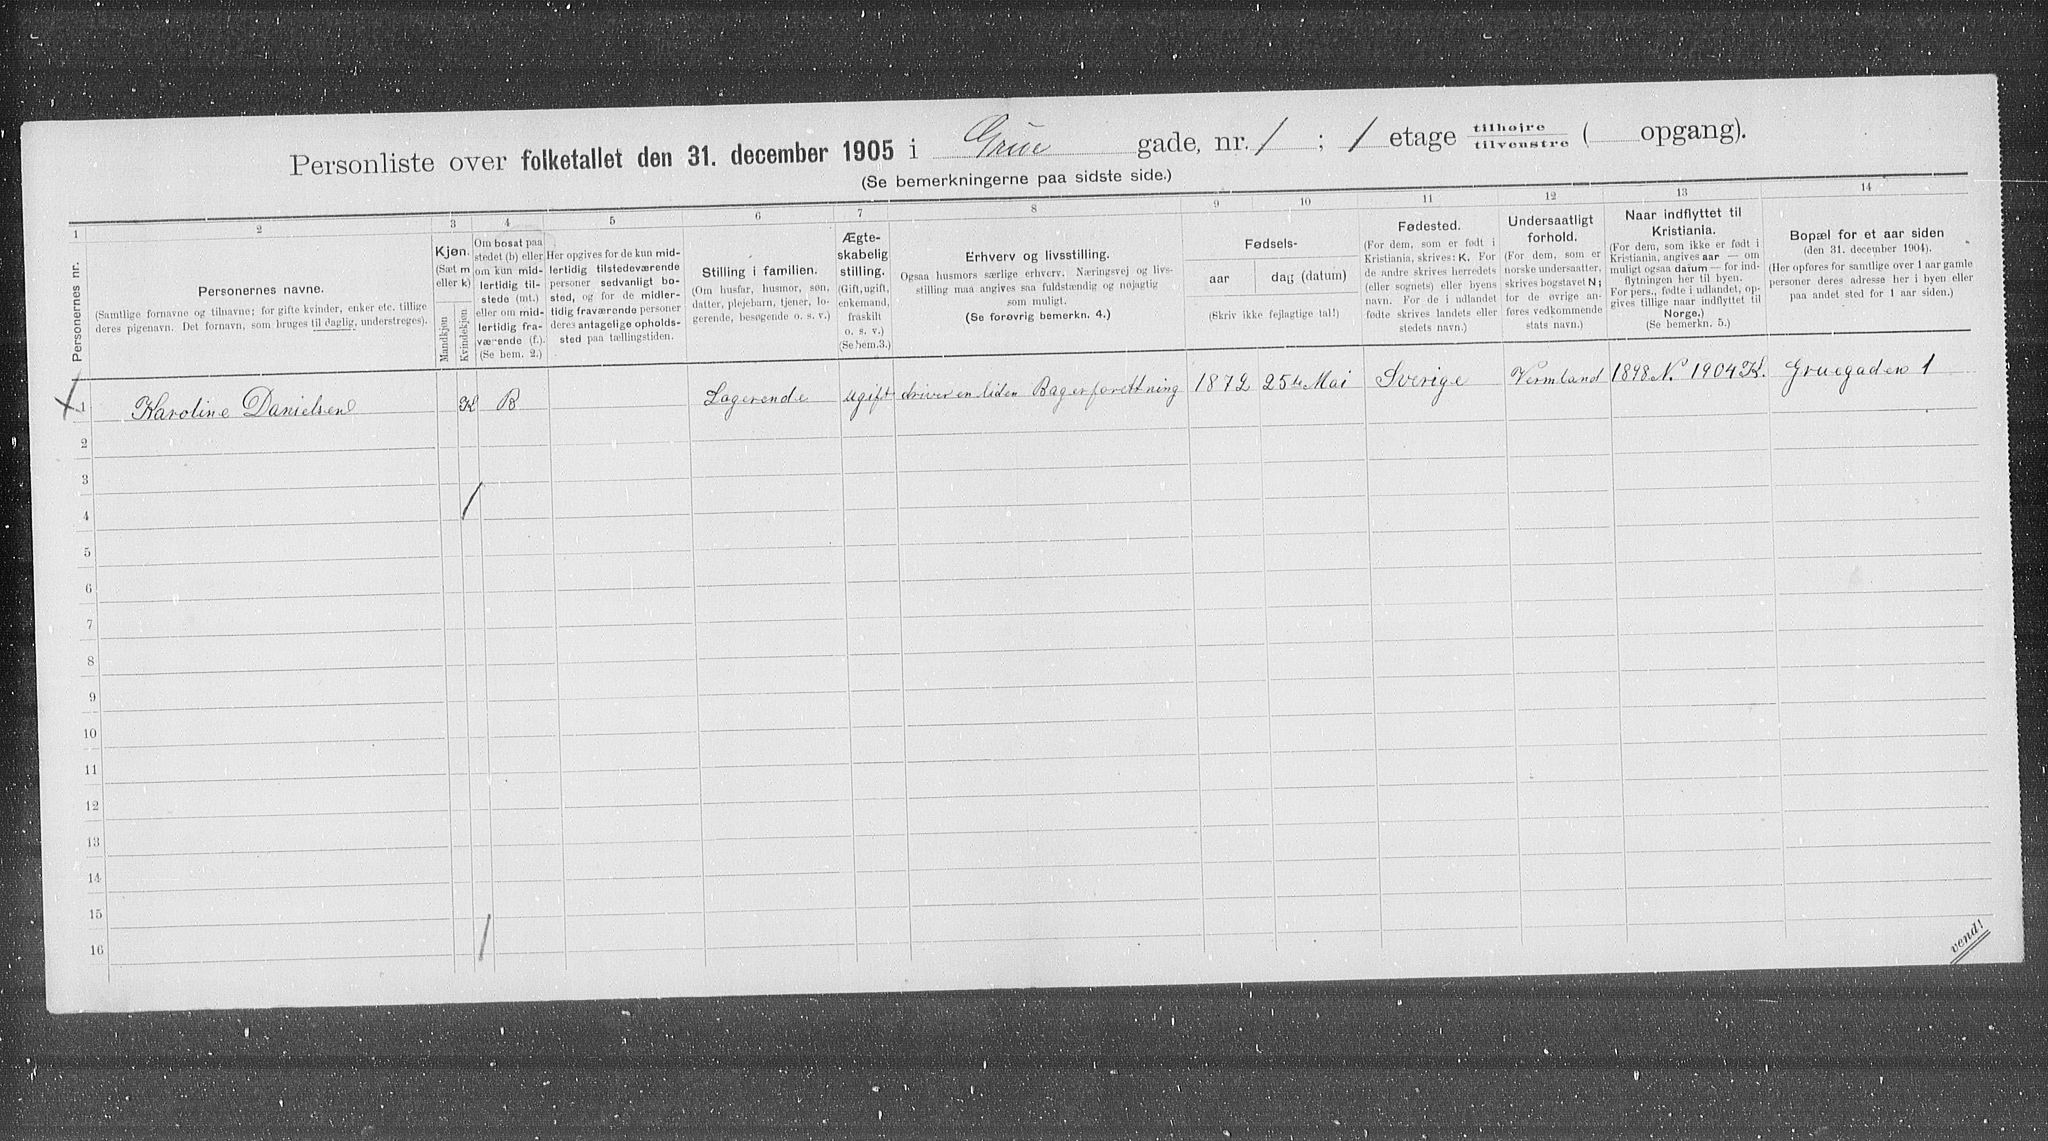 Personliste over folketallet den 31. december 1905 i Grüe gade, nr. 1 ; 1 etage tilhøjre tilvenstre ( opgang).
(Se bemerkningerne paa sidste side.)
1 2 3 4 5 6 7 8 9 10 11 12 13 14
Personernes nr.
Personernes navne.
(Samtlige fornavne og tilnavne; for gifte kvinder, enker etc. tillige
deres pigenavn. Det fornavn, som bruges til daglig, understreges).
Kjøn.
(Sæt m
eller k)
Mandkjøn
Kvindekjøn
Om bosat paa
stedet (b) eller
om kun mid-
lertidig til-
stede (mt.)
eller om mid-
lertidig fra-
værende (f.).
(Se bem. 2.)
Her opgives for de kun mid-
lertidig tilstedeværende
personer sedvanligt bo-
sted, og for de midler-
tidig fraværende personer
deres antagelige opholds-
sted paa tællingstiden.
Stilling i familien.
(Om husfar, husmor, søn,
datter, plejebarn, tjener, lo-
gerende, besøgende o. s. v.)
Ægte-
skabelig
stilling.
(Gift, ugift,
enkemand,
fraskilt
o. s. v.)
(Se bem. 3.)
Erhverv og livsstilling.
Ogsaa husmors særlige erhverv. Næringsvej og livs-
stilling maa angives saa fuldstændig og nøjagtig
som muligt.
(Se forøvrig bemerkn. 4.)
Fødsels-
aar dag (datum)
(Skriv ikke fejlagtige tal!)
Fødested.
(For dem, som er født i
Kristiania, skrives: K. For
de andre skrives herredets
(eller sognets) eller byens
navn. For de i udlandet
fødte skrives landets eller
stedets navn.)
Undersaatligt
forhold.
(For dem, som er
norske undersaatter,
skrives bogstavet N;
for de øvrige an-
føres vedkommende
stats navn.)
Naar indflyttet til
Kristiania.
(For dem, som ikke er født i
Kristiania, angives aar — om
muligt ogsaa datum — for ind-
flytningen her til byen.
For pers., født e i udlandet, op-
gives tillige naar indflyttet til
Norge.)
(Se bemerkn. 5.)
Bopæl for et aar siden
(den 31. december 1904).
(Her opføres for samtlige over 1 aar gamle
personer deres adresse her i byen eller
paa andet sted for 1 aar siden.)
1 Karoline Danielsen K B Logerende ugift driver en liden Bagerforettning 1872 25de Mai Sverige Vermland 1898 N. 1904 K. Gruegaden 1
2
3
4
5
6
7
8
9
10
11
12
13
14
15
16
vend!